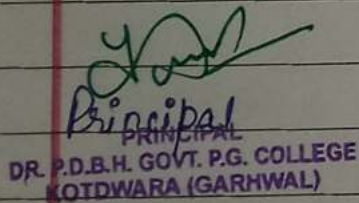 Principal
PRINCIPAL
DR. P.D.B.H. GOVT. P.G. COLLEGE
KOTDWARA (GARHWAL)